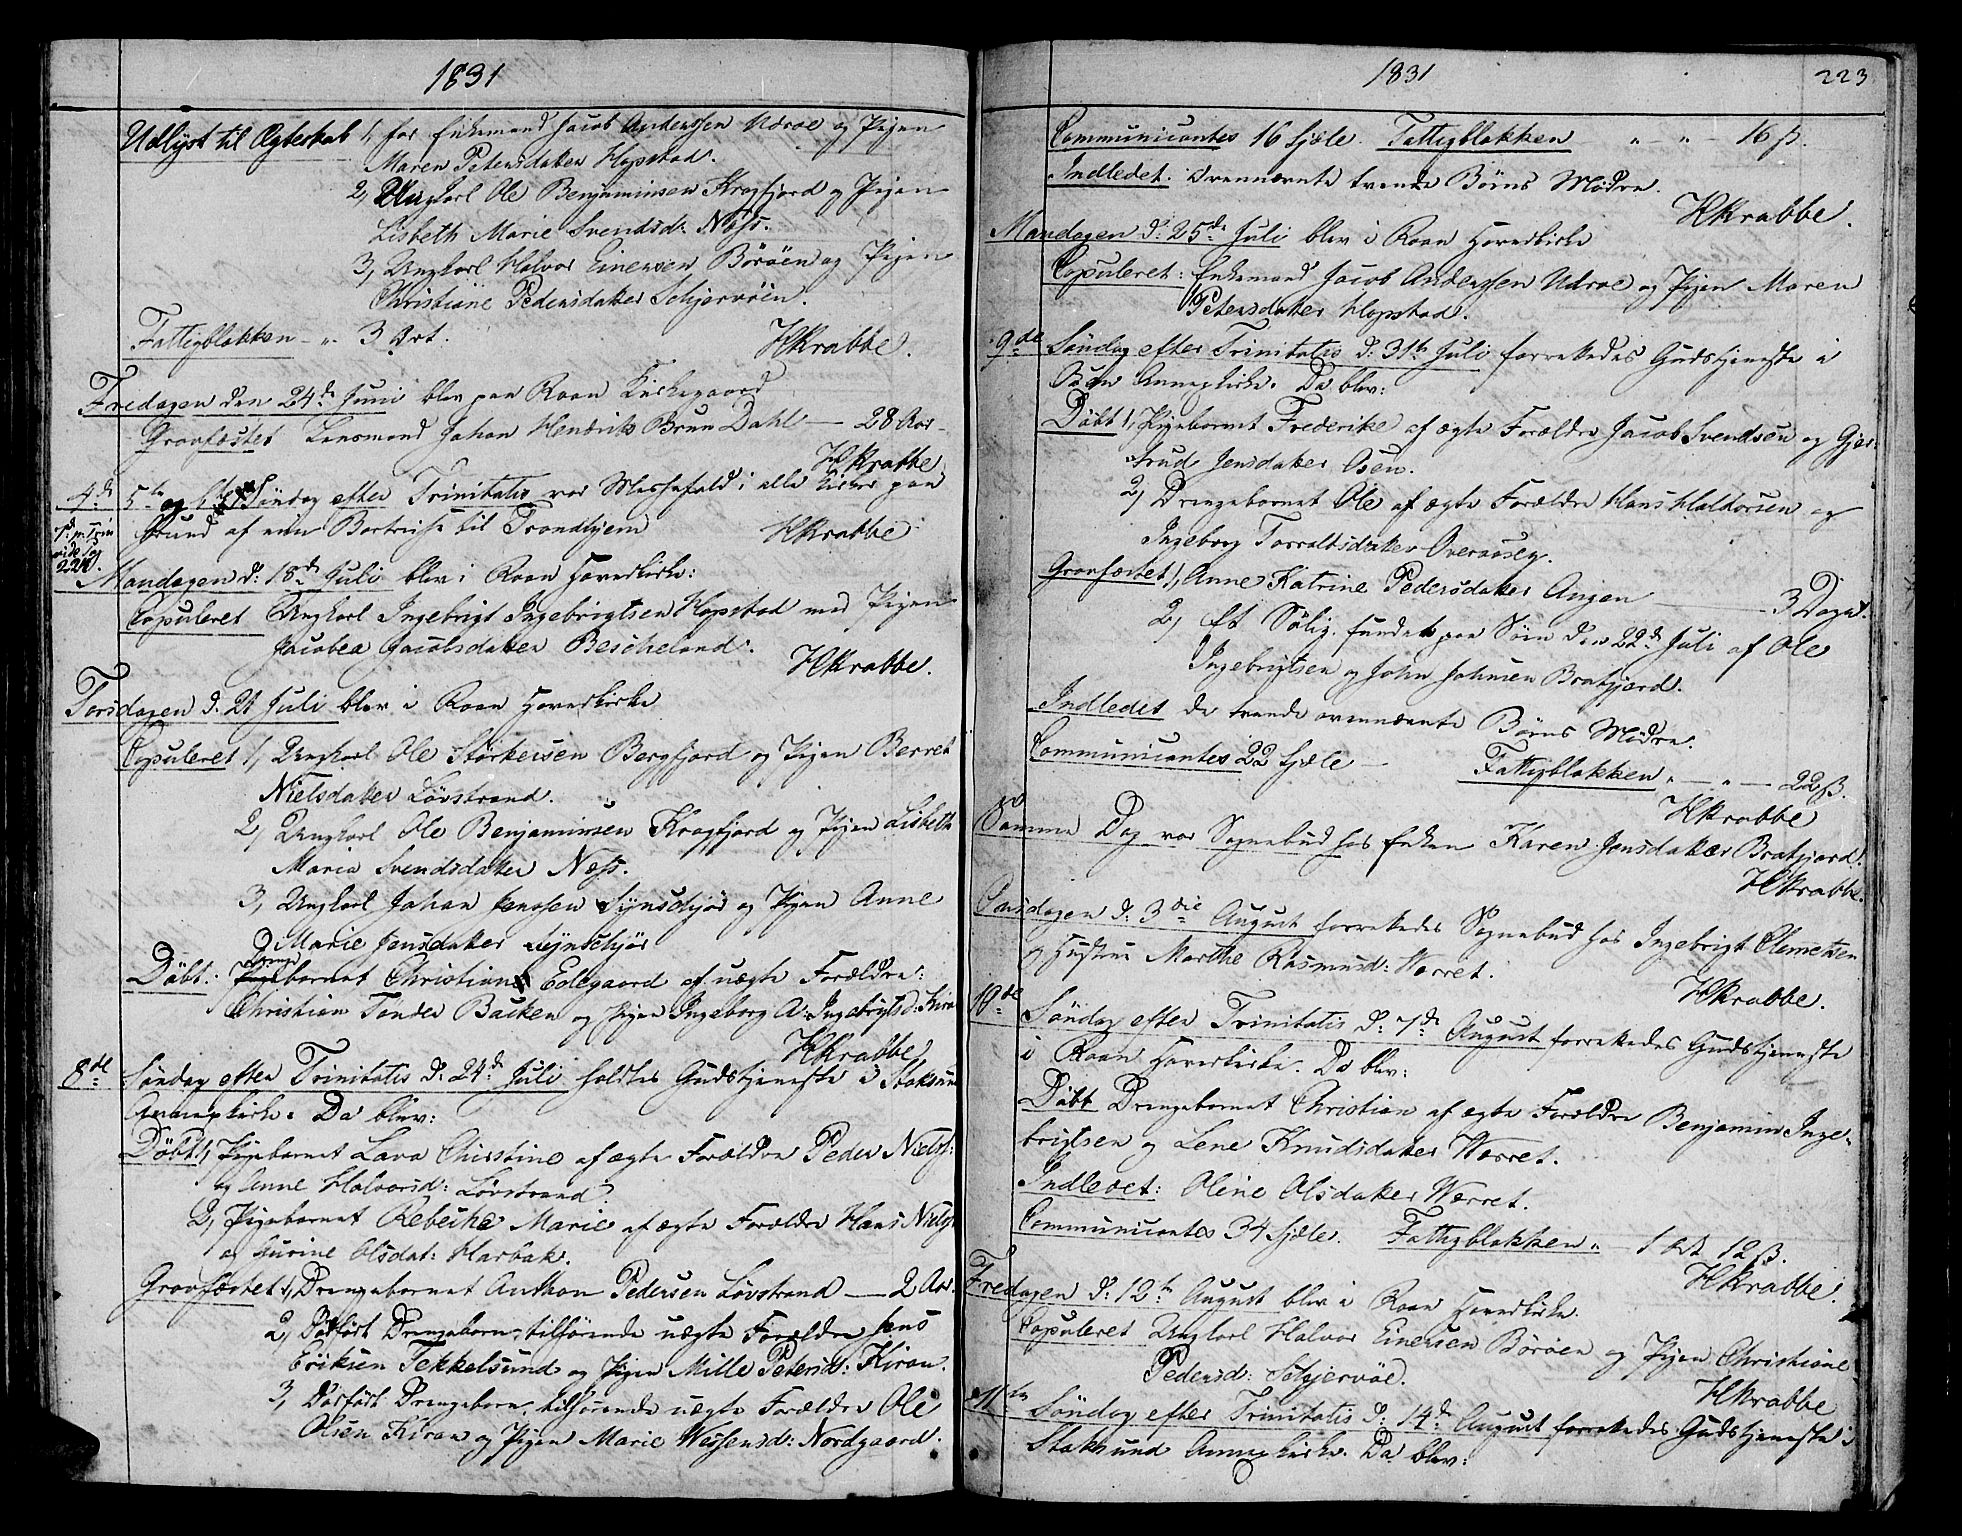 1831
Udlyst til Ægteskab 1, for Enkemand Jacob Anderssen Udroe og Pigen
Maren Petersdatter Hopstad.
2, Ungkarl Ole Benjaminsen Kragfjord og Pigen
Lisbeth Marie Svendsd: Næss.
3, Ungkarl Halvor Einersen Börøen og Pigen
Christiane Pedersdatter Schjervöen.
Fattigblokken - " 3 Ort.
HKrabbe.
Fredagen den 24de Juni blev paa Roan Kirkegaard
Gravfæstet Lensmand Johan Hendrik Brun Dahl — 28 Aar
HKrabbe
4de 5te og 6te Söndag efter Trinitatis var Messefald i alle Kirker paa
Grund af min Bortreise til Trondhjem
HKrabbe
7d p. Trin
vide Pag
224.
Mandagen d: 18de Juli blev i Roan Hovedkirke:
Copuleret Ungkarl Ingebrigt Ingebrigtsen Hopstad med Pigen
Jacobea Jacobsdatter Bescheland.
HKrabbe.
Torsdagen d. 21 Juli blev i Roan Hovedkirke
Copuleret 1, Ungkarl Ole Störkersen Bergfjord og Pigen Berret
Nielsdatter Lövstrand.
2, Ungkarl Ole Benjaminsen Kragfjord og Pigen Lisbeth
Maria Svendsdatter Næss.
3, Ungkarl Johan Jenssen Sÿnschjör og Pigen Anne
Marie Jensdatter Sÿnschjör
Döbt: Pigebarnet Drenge Christian Edegaard af uægte Forældre:
Christian Tönder Backen og Pigen Ingeborg A: Ingebrigtsd: Kiran
HKrabbe
8de Söndag efter Trinitatis d: 24de Juli holdtes Gudstjeneste i Stoksund
Annexkirke. Da blev:
Döbt 1, Pigebarnet Lava Christine af ægte Forældre Peder Niels:
og Anne Halvorsd: Lövstrand.
2, Pigebarnet Rebecka Marie af ægte Forældre Hans Niels:
og Gurine Olsdat: Harbak.
Gravfæstet 1, Drengebarnet Anthon Pedersen Lövstrand — 2 Aar.
2, Dödfödt Drengebarn, tilhörende uægte Forældre Jens
Eriksen Tekkelsund og Pigen Mille Petersd: Kiran.
3, Dödfödt Drengebarn tilhörende uægte Forældre Ole
Olsen Kiran og Pigen Marie Wessensd: Nordgaard.
1831
223
Communicantes 16 Sjæle. Fattigblokken " — " — 16 ß.
Indledet. Ovennævnte tvende Börns Mödre.
HKrabbe.
Mandagen d: 25de Juli blev i Roan Hovedkirke
Copuleret: Enkemand Jacob Anderssen Udroe og Pigen Maren
Petersdatter Hopstad.
9de Söndag efter Trinitatis d: 31te Juli forrettedes Gudstjeneste i
Osen Annexkirke. Da blev:
Döbt 1, Pigebarnet Frederike af ægte Forældre Jacob Svendsen og Gjer-
trud Jensdatter Osen.
2, Drengebarnet Ole af ægte Forældre Hans Haldorsen og
Ingeborg Torvaldsdatter Overaasen.
Gravfæstet 1, Anne Katrine Pedersdatter Angen — 3 Dage.
2, Et Sölig fundet paa Söen den 22de Juli af Ole
Ingebrigtsen og John Johnsen Bratjord.
Indledet de tvende ovennævnte Börns Mödre.
Communicantes 22 Sjæle — Fattigblokken " — " — 22 ß.
HKrabbe
Samme Dag var Sognebud hos Enken Karen Jonsdatter Bratjord.
HKrabbe.
Onsdagen d: 3die August forrettedes Sognebud hos Ingebrigt Clemetsen
og Hustru Marthe Rasmusd: Werret.
HKrabbe.
10de Söndag efter Trinitatis d: 7de August forrettedes Gudstjeneste
i Roan Hovedkirke. Da blev:
Döbt Drengebarnet Christian af ægte Forældre Benjamin Inge-
brigtsen og Lene Knudsdatter Werret.
Indledet: Oline Olsdatter Werret.
Communicantes 34 Sjæle. Fattigblokken " — 1 Ort 12 ß.
HKrabbe.
Fredagen d: 12te August blev i Roan Hovedkirke.
Copuleret Ungkarl Halvor Einersen Börøen og Pigen Christiane
Pedersd: Schjervöe.
HKrabbe
11te Söndag efter Trinitatis d: 14de August forrettedes Gudstjeneste i
Stoksund Annexkirke. Da blev: